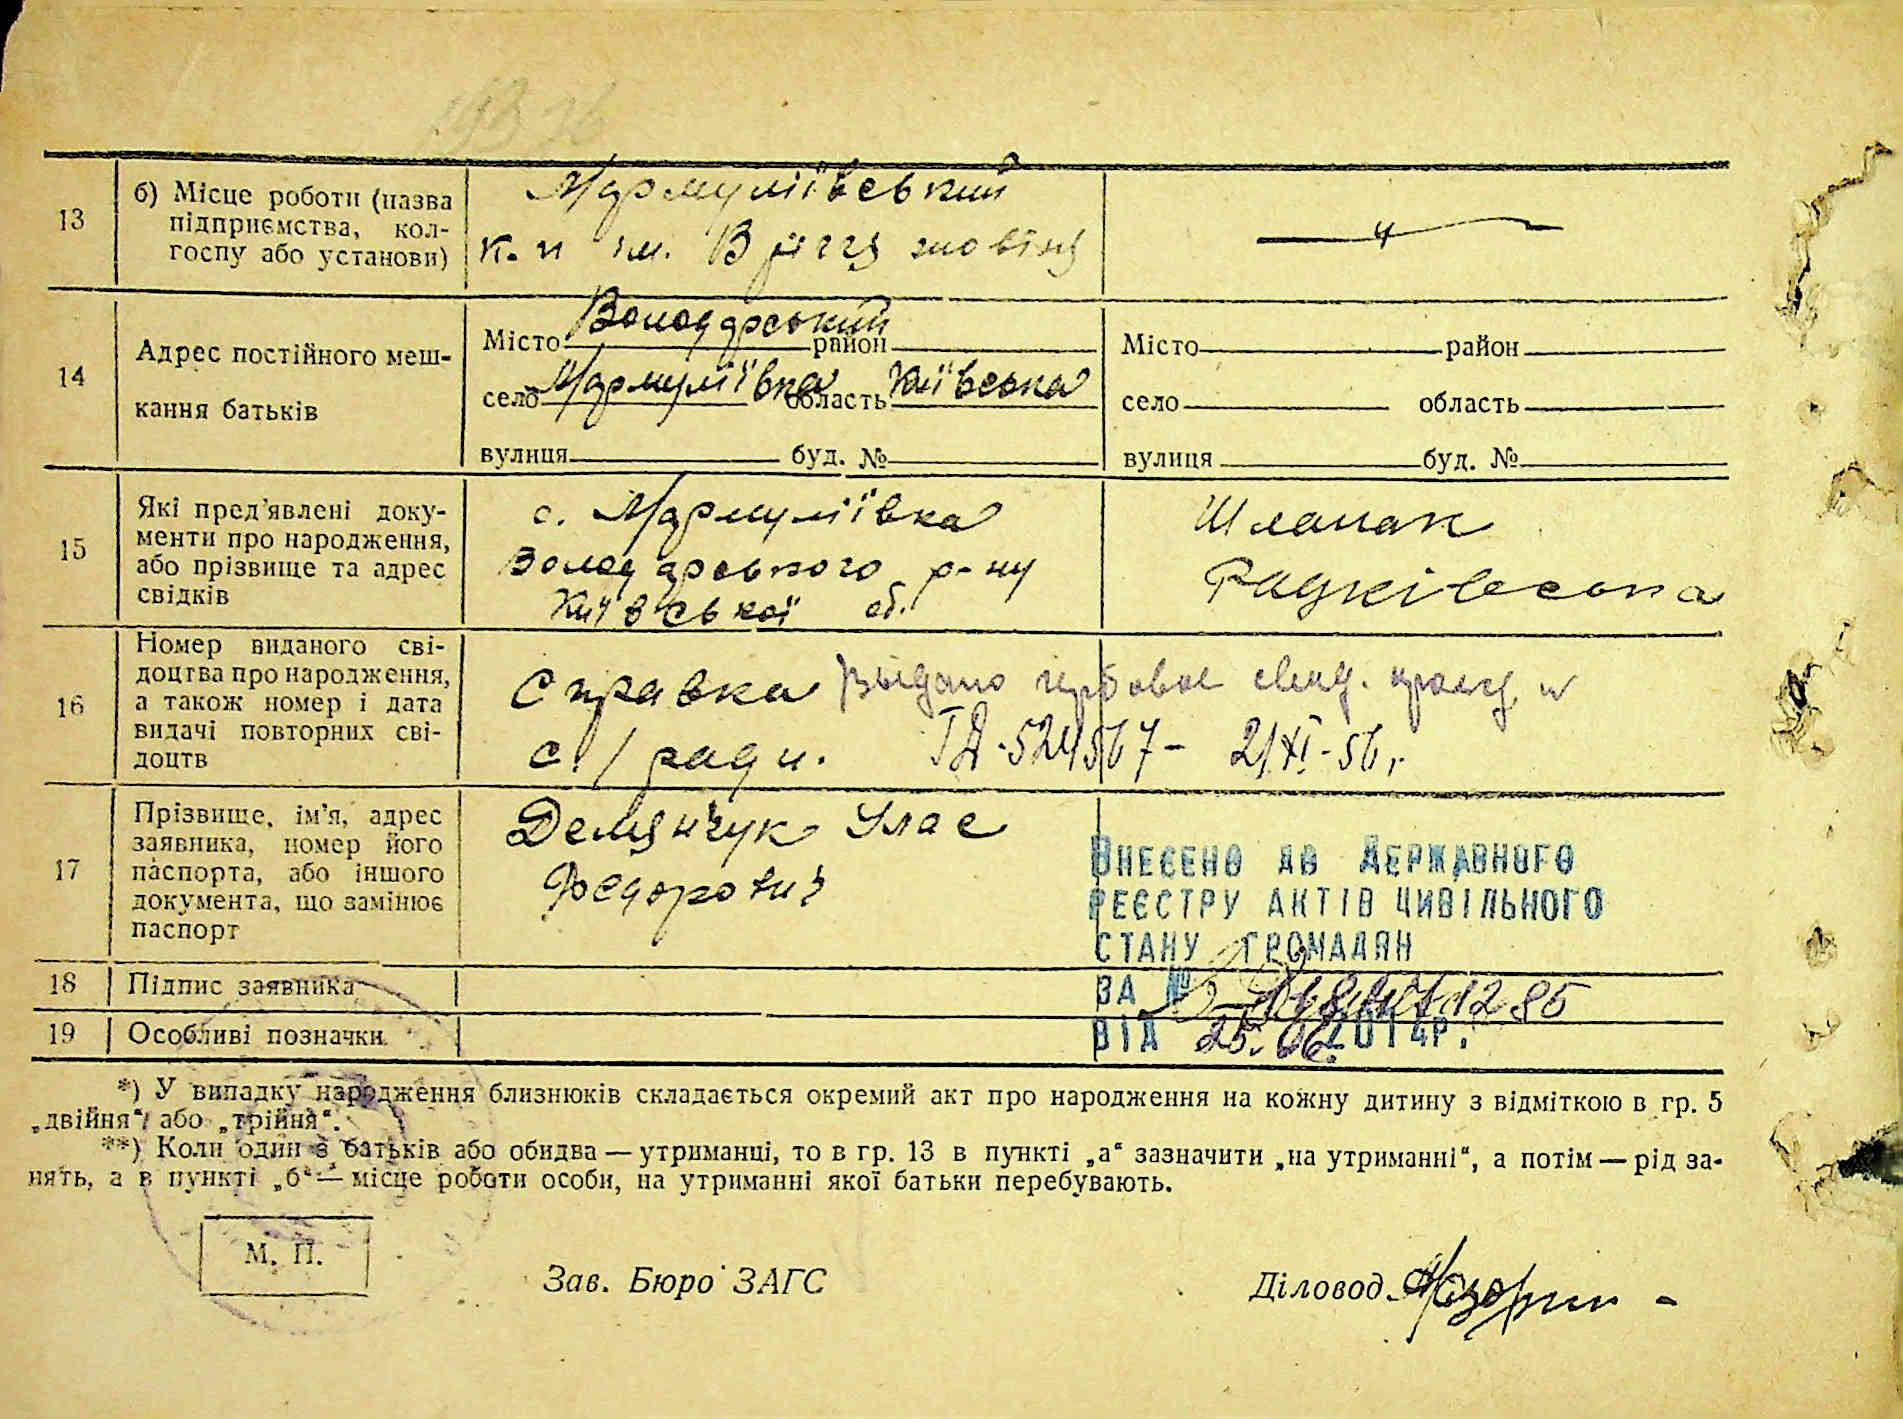 13
б) Місце роботи (назва
підприємства, кол-
госпу або установи)
Мармуліївський
к. п ім.
14
Адрес постійного меш-
кання батьків
Місто Володарський район
село Мармуліївка область Київська
вулиця буд. №
Місто район
село область
вулиця буд. №
15
Які пред'явлені доку-
менти про народження,
або прізвище та адрес
свідків
с. Мармуліївка
Володарського р-ну
Київської об.
16
Номер виданого сві-
доцтва про народження,
а також номер і дата
видачі повторних сві-
доцтв
Справка
с/ради.
Выдано гербовое свид.
21/XI-56г.
17
Прізвище, ім'я, адрес
заявника, номер його
паспорта, або іншого
документа, що замінює
паспорт
Демянчук Улас
Федорович
ВНЕСЕНО ДО ДЕРЖАВНОГО
РЕЄСТРУ АКТІВ ЦИВІЛЬНОГО
СТАНУ ГРОМАДЯН
ЗА №
ВІД 25.06.2014Р.
18
Підпис заявника
19
Особливі позначки
*) У випадку народження близнюків складається окремий акт про народження на кожну дитину з відміткою в гр. 5
„двійня“ або „трійня“.
**) Коли один з батьків або обидва — утриманці, то в гр. 13 в пункті „а“ зазначити „на утриманні“, а потім — рід за-
нять, а в пункті „б“ — місце роботи особи, на утриманні якої батьки перебувають.
М. П.
Зав. Бюро ЗАГС
Діловод